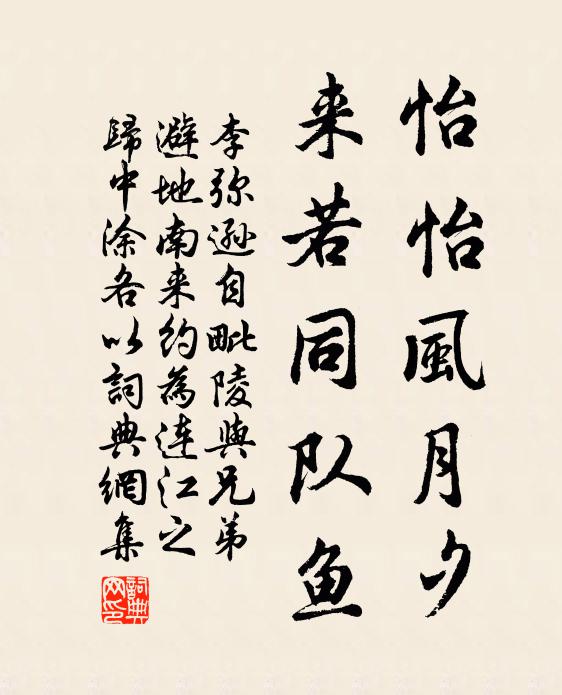 怡怡風月夕
来若同队鱼
李弥遜自毗陵與兄弟
避地南来約為連江之
歸中涂各以詞典網集
詞典網印